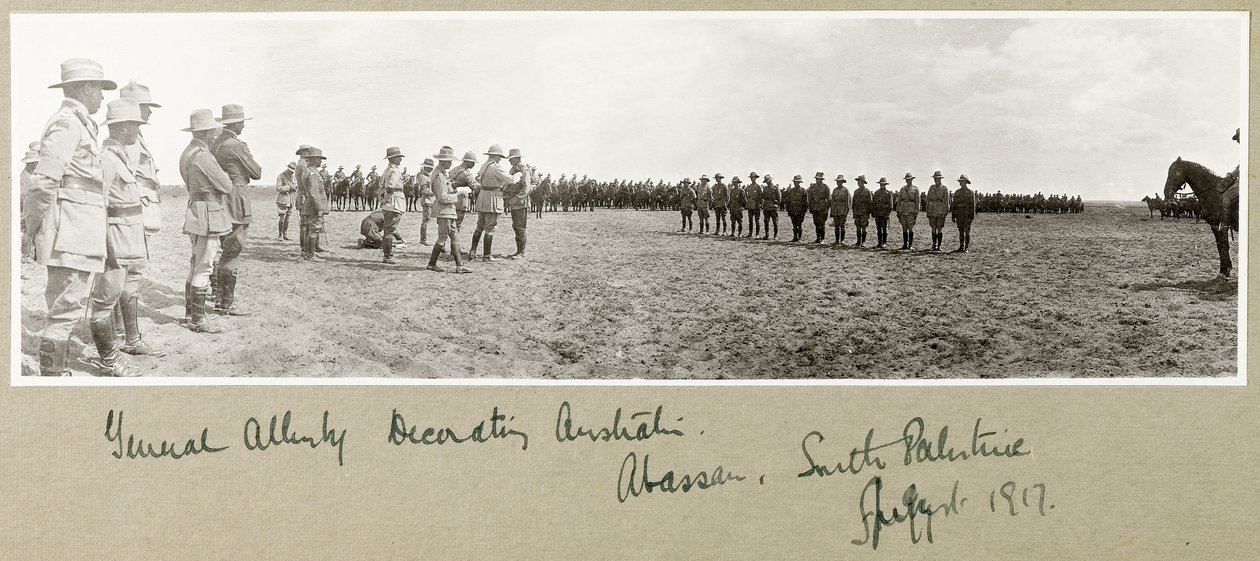 General Allenby Decorating Australian.
Abassan, South Palestine
August 1917.